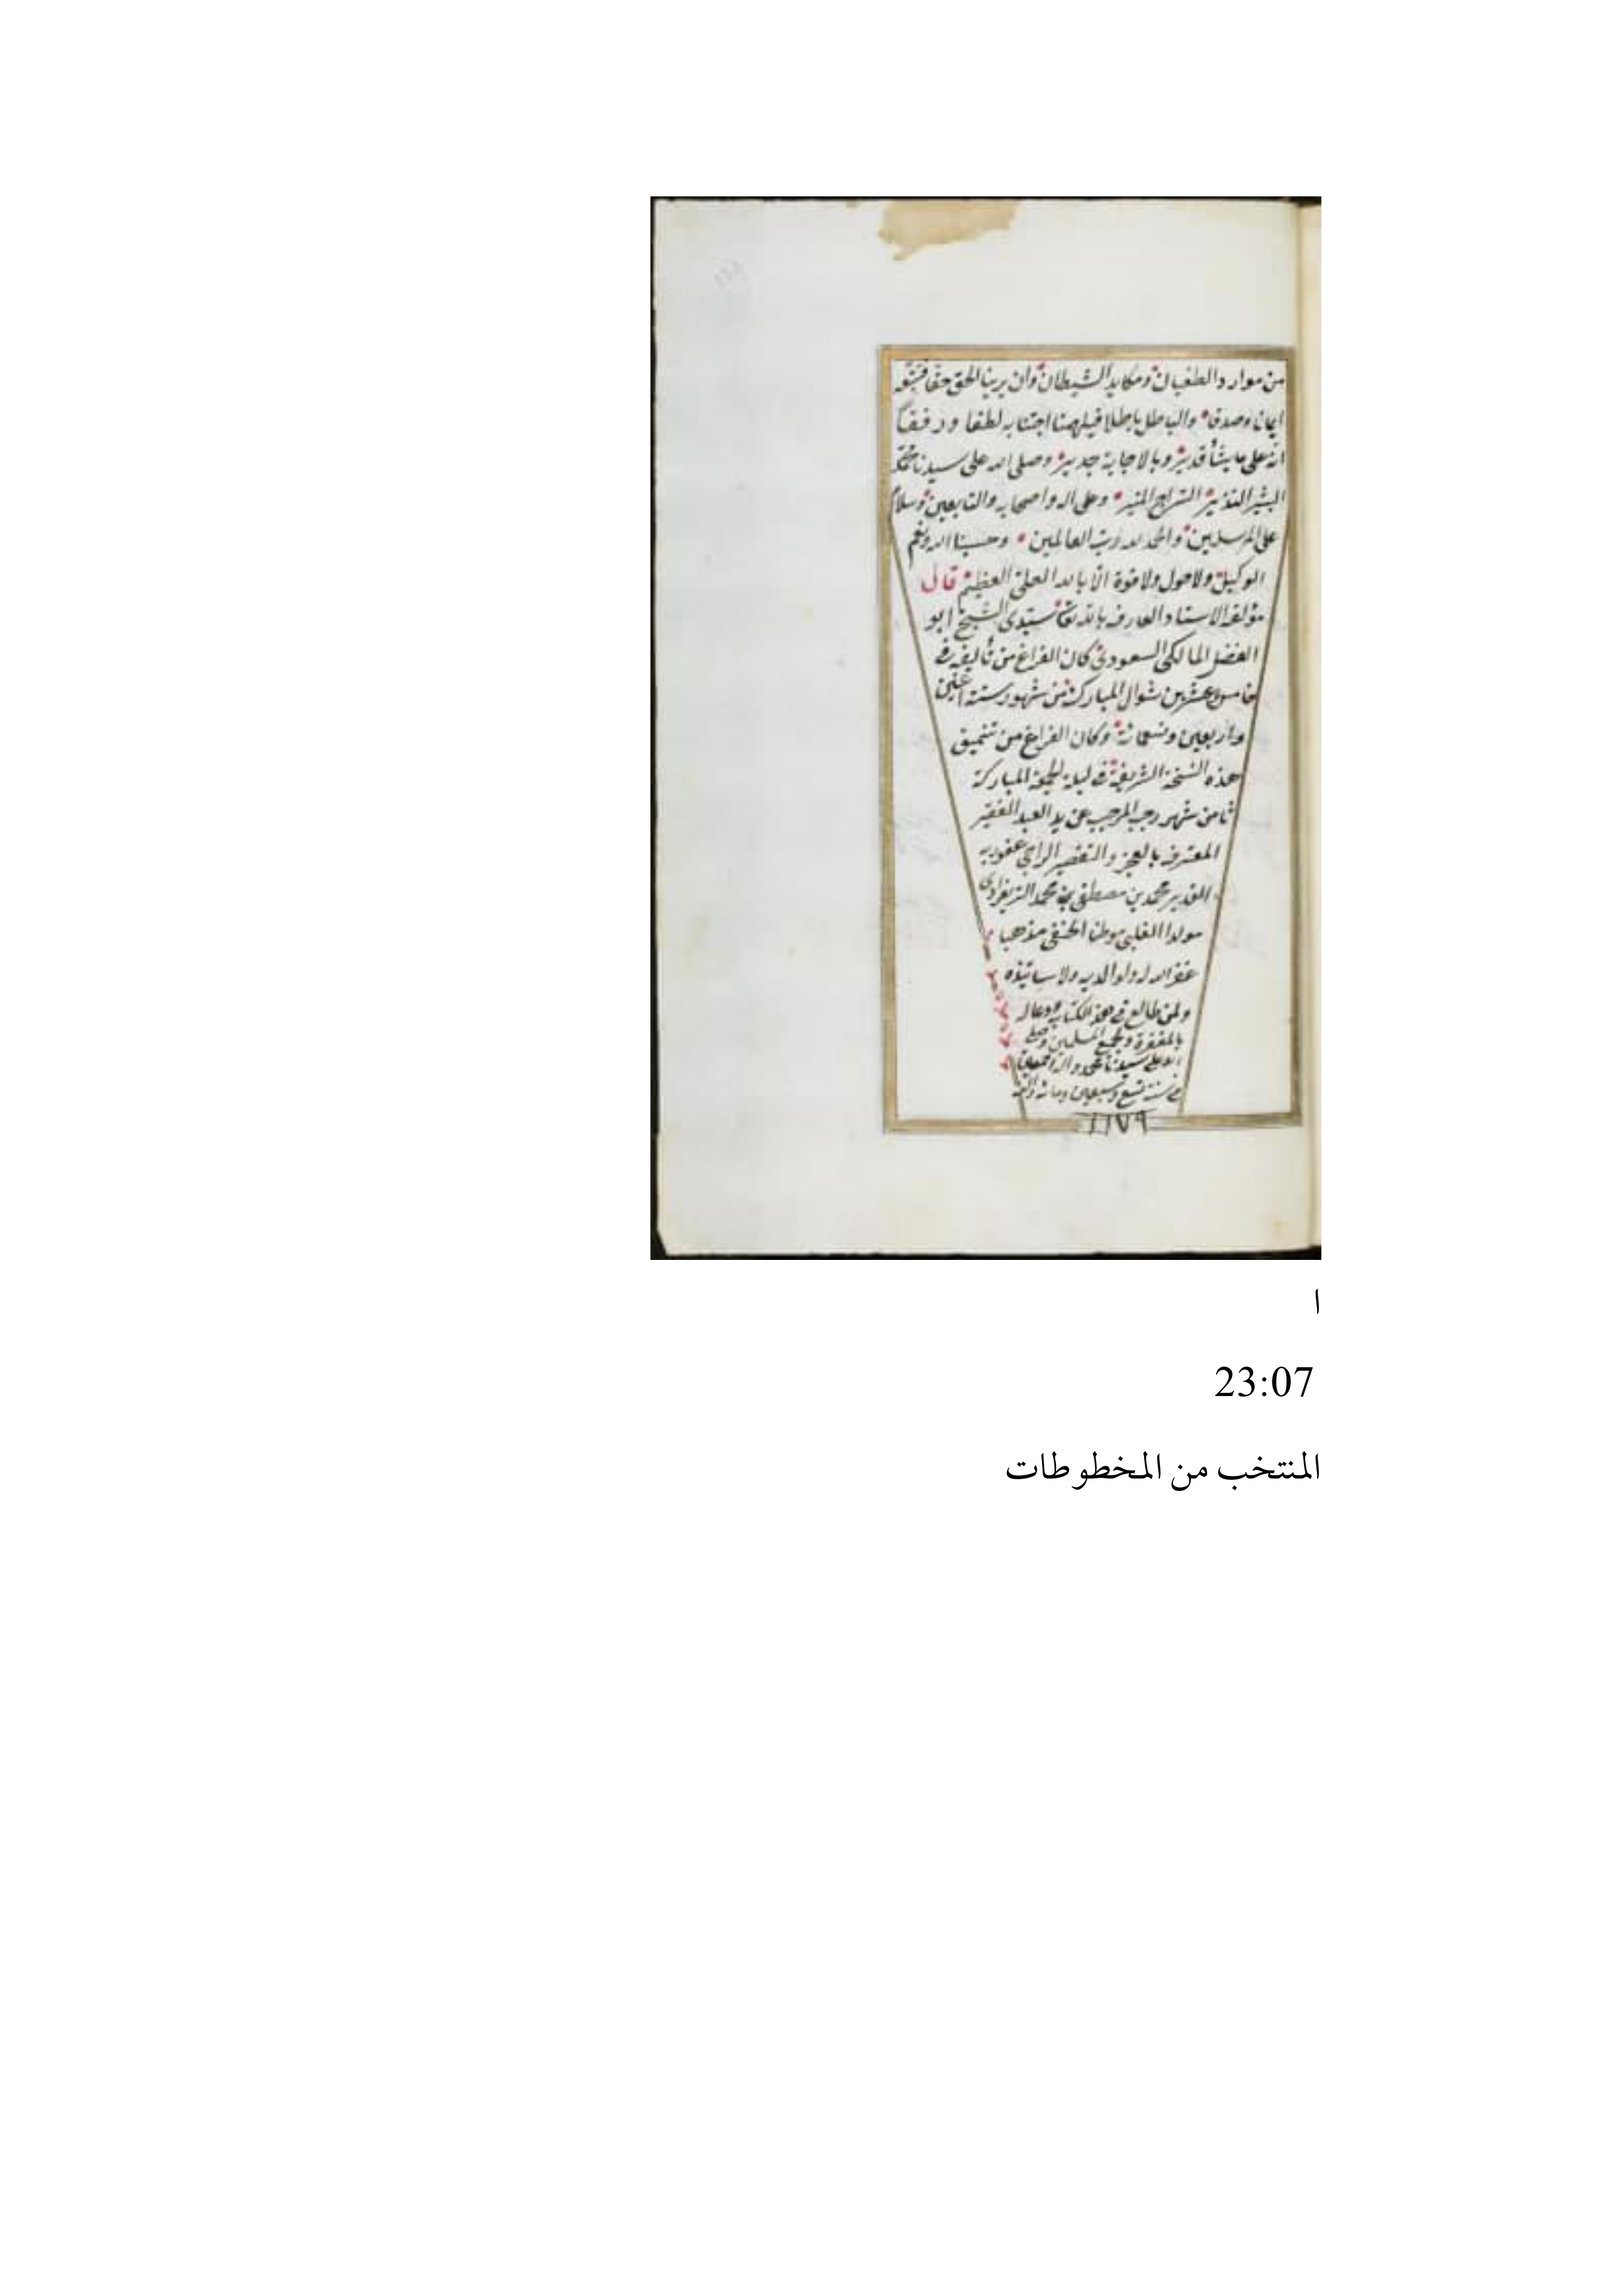 من موارد الطغيان ومكايد الشيطان وان يرينا الحق حقا فنتبعه
ايمانا وصدقا والباطل باطلا فيلهمنا اجتنابه لطفا ورفقا
انه على ما يشأ قدير وبالاجابة جدير وصلى الله على سيدنا محمد
البشير النذير السراج المنير وعلى اله واصحابه والتابعين وسلام
على المرسلين والحمد لله رب العالمين وحسبنا الله ونعم
الوكيل ولا حول ولا قوة الا بالله العلى العظيم قال
مؤلفه الاستاد العارف بالله تعا سيدى الشيخ ابو
الفضل المالكى السعودى كان الفراغ من تأليفه فى
خامس وعشرين شوال المبارك من شهور سنة اثنين
واربعين وتسعمائة وكان الفراغ من تنميق
هذه النسخة الشريفة فى ليلة الجمعة المباركة
ثامن شهر رجب المرجب عن يد العبد الفقير
المعترف بالعجز والتقصير الراجى عفو ربه
القدير محمد بن مصطفى بن محمد
مولدا موطنا الحنفى مذهبا
غفر الله له ولوالديه ولاساتيذه
ولمن طالع فى هذا الكتاب ودعا له
بالمغفرة ولجميع المسلمين وصلى
الله على سيدنا محمد واله اجمعين
فى سنة تسع وسبعين ومائة والف
١١٧٩
ا
23:07
المنتخب من المخطوطات